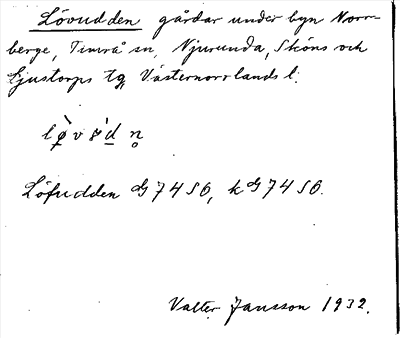 Lövudden gårdar under byn Norr-
berge, Timrå sn, Njurunda, Sköns och
Ljustorps tg, Västernorrlands l.
Löfudden G 74 SO, kG 74 SO.
Valter Jansson 1932.